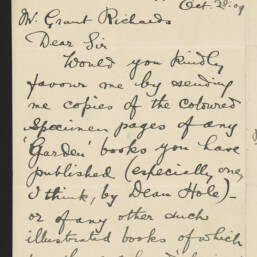 Oct. 28. 09
Mr. Grant Richards
Dear Sir
Would you kindly
favour me by sending
me copies of the coloured
specimen pages of any
'Garden' books you have
published (especially one,
I think, by Dean Hole) –
or of any other such
illustrated books of which